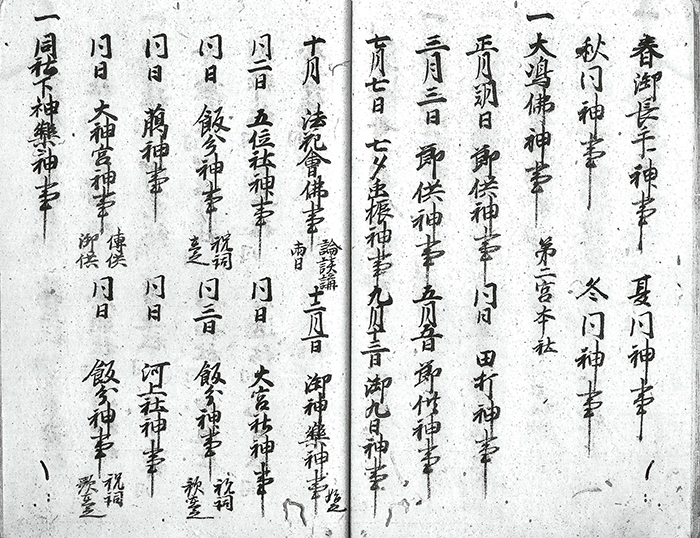 一 春御長手神事 夏同神事
秋同神事 冬同神事
一 大嶋佛神事 第二宮本社
正月朔日 節供神事 同日 田打神事
三月三日 節供神事 五月五日 節供神事
七月七日 七夕虫振神事 九月十三日 御九日神事
十月 法花會佛事 論談講 両日 十二月一日 御神樂神事
同二日 五位社神事 同日 大宮社神事
同日 飯分神事 祝詞 同三日 飯分神事 祝詞
同日 神事 同日 河上社神事
同日 大神宮神事 傳供 御供 同日 飯分神事 祝詞
一 同社下神樂神事